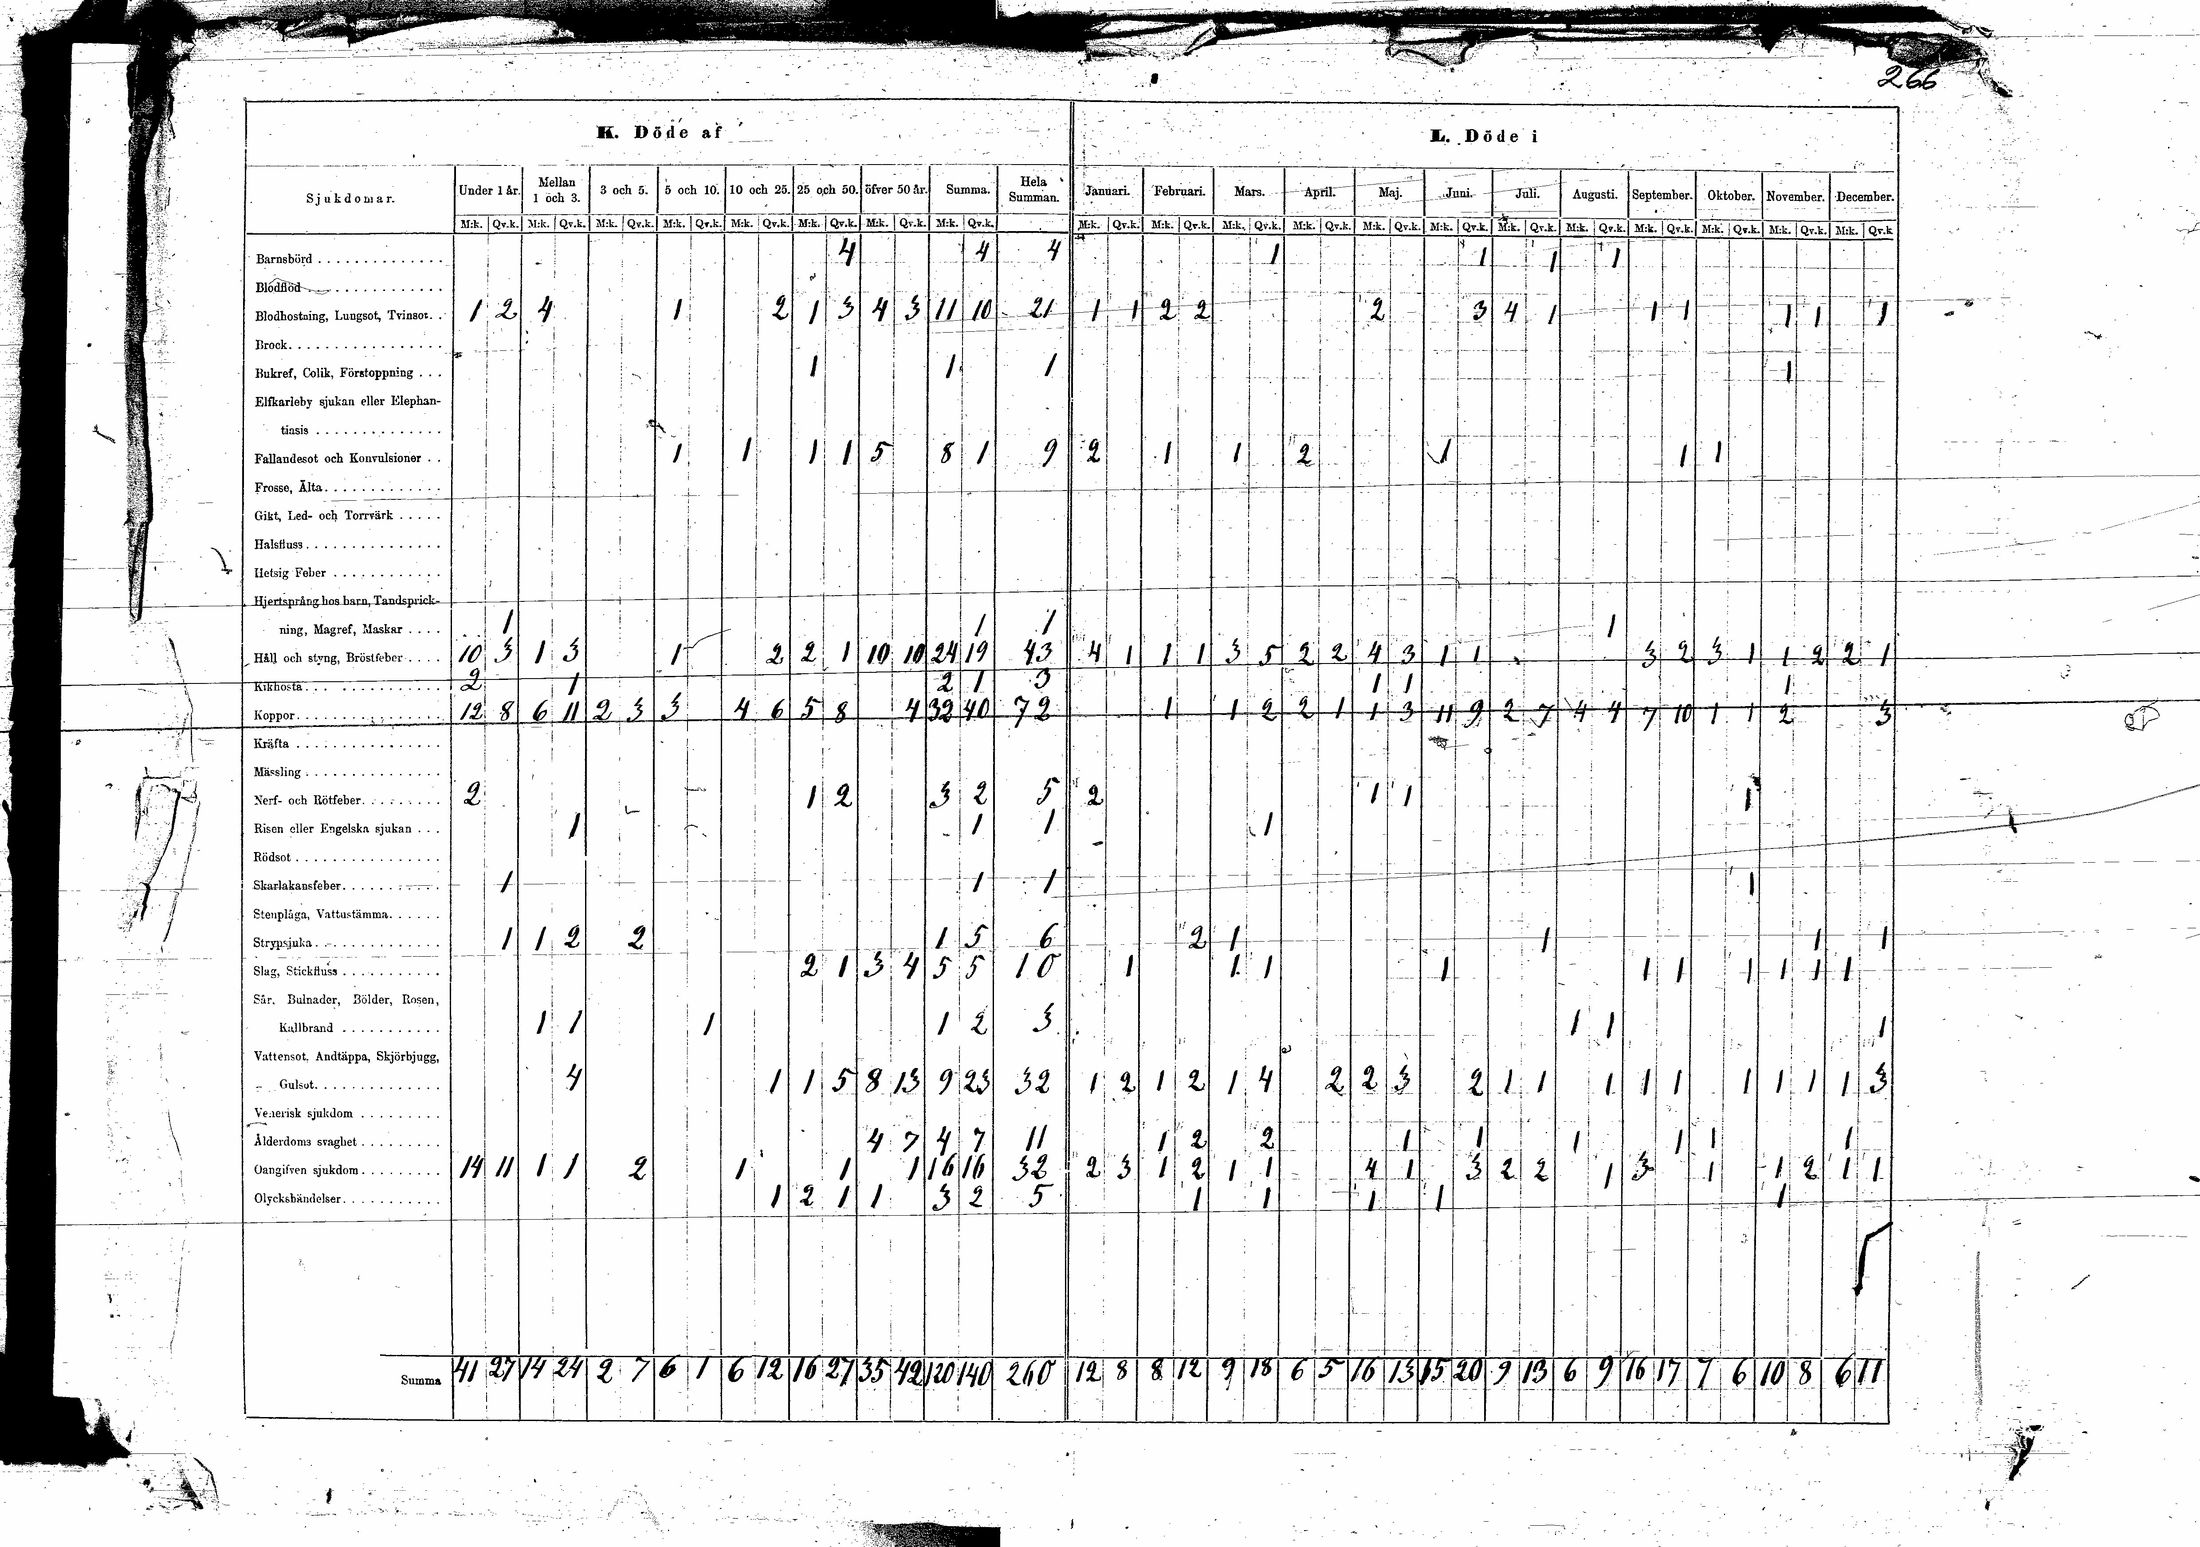 266
K. Döde af
L. Döde i
Sjukdomar. Under 1 år. Mellan 1 och 3. 3 och 5. 5 och 10. 10 och 25. 25 och 50. öfver 50 år. Summa. Hela Summan. Januari. Februari. Mars. April. Maj. Juni. Juli. Augusti. September. Oktober. November. December.
M:k. Qv.k. M:k. Qv.k. M:k. Qv.k. M:k. Qv.k. M:k. Qv.k. M:k. Qv.k. M:k. Qv.k. M:k. Qv.k. M:k. Qv.k. M:k. Qv.k. M:k. Qv.k. M:k. Qv.k. M:k. Qv.k. M:k. Qv.k. M:k. Qv.k. M:k. Qv.k. M:k. Qv.k. M:k. Qv.k. M:k. Qv.k. M:k. Qv.k
Barnsbörd 4 4 4 1 1 1 1
Blodflöd
Blodhostning, Lungsot, Tvinsot. 1 2 4 1 2 1 3 4 3 11 10 21 1 1 2 2 2 3 4 1 1 1 1 1 1
Brock
Bukref, Colik, Förstoppning 1 1 1 1
Elfkarleby sjukan eller Elephan-
tiasis
Fallandesot och Konvulsioner 1 1 1 1 5 8 1 9 2 1 1 2 1 1 1
Frosse, Älta
Gikt, Led- och Torrvärk
Halsfluss
Hetsig Feber
Hjertsprång hos barn, Tandsprick-
ning, Magref, Maskar 1 1 1 1
Håll och styng, Bröstfeber 10 3 1 3 1 2 2 1 10 10 24 19 43 4 1 1 1 3 5 2 2 4 3 1 1 3 2 3 1 1 2 2 1
Kikhosta 2 1 2 1 3 1 1 1
Koppor 12 8 6 11 2 3 3 4 6 5 8 4 32 40 72 1 1 2 2 1 1 3 11 9 2 7 4 4 7 10 1 1 2 3
Kräfta
Mässling
Nerf- och Rötfeber 2 1 2 3 2 5 2 1 1 1
Risen eller Engelska sjukan 1 1 1 1
Rödsot
Skarlakansfeber 1 1 1 1
Stenplåga, Vattustämma
Strypsjuka 1 1 2 2 1 5 6 2 1 1 1 1
Slag, Stickfluss 2 1 3 4 5 5 10 1 1 1 1 1 1 1 1 1 1
Sår, Bulnader, Bölder, Rosen,
Kallbrand 1 1 1 1 2 3 1 1 1
Vattensot, Andtäppa, Skjörbjugg,
Gulsot 4 1 1 5 8 13 9 23 32 1 2 1 2 1 4 2 2 3 2 1 1 1 1 1 1 1 1 1 3
Venerisk sjukdom
Ålderdoms svaghet 4 7 4 7 11 1 2 2 1 1 1 1 1 1
Oangifven sjukdom 14 11 1 1 2 1 1 1 16 16 32 2 3 1 2 1 1 4 1 3 2 2 1 3 1 1 2 1 1
Olycksbändelser 1 2 1 1 3 2 5 1 1 1 1 1
Summa 41 27 14 24 2 7 6 1 6 12 16 27 35 42 120 140 260 12 8 8 12 9 18 6 5 16 13 15 20 9 13 6 9 16 17 7 6 10 8 6 11